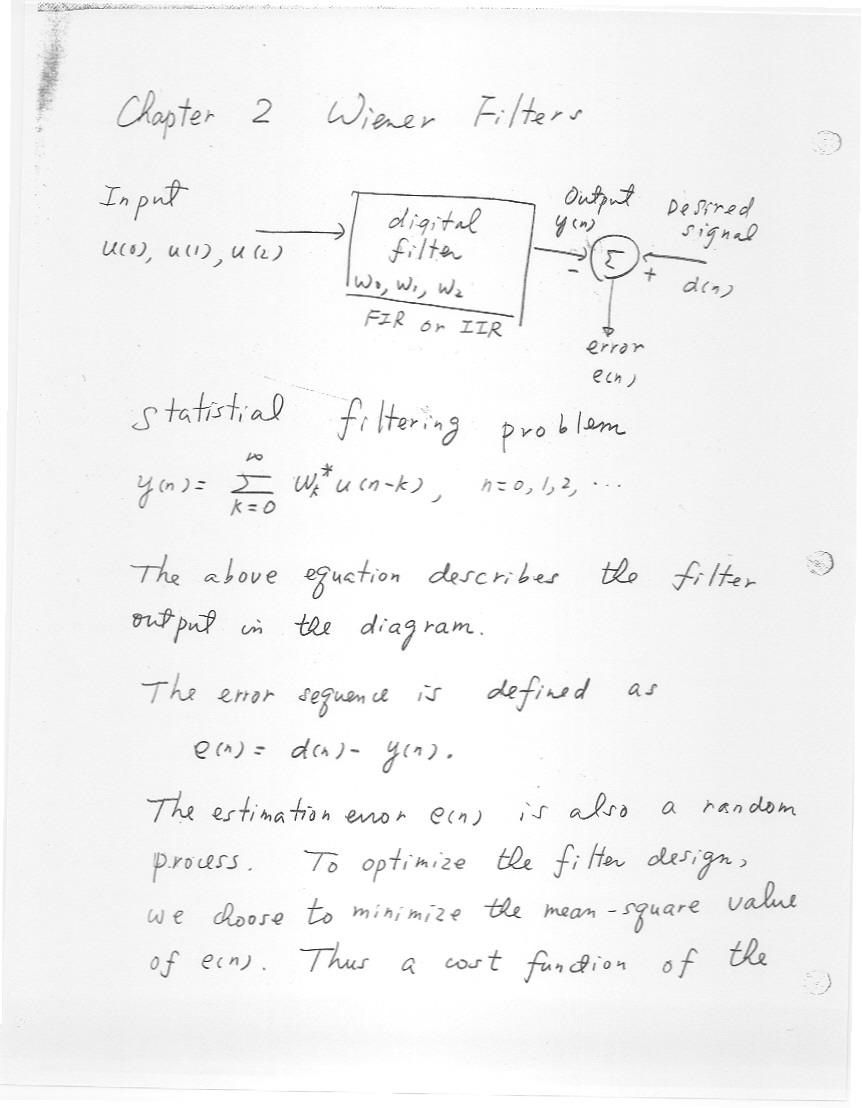 Chapter 2 Wiener Filters
Input
u(0), u(1), u(2)
digital
filter
w₀, w₁, w₂
FIR or IIR
Output
y(n)
Desired
signal
Σ
- +
d(n)
error
e(n)
statistial filtering problem
y(n) = ∑_{k=0}^{∞} w_k^* u(n-k), n=0, 1, 2, ...
The above equation describes the filter
output in the diagram.
The error sequence is defined as
e(n) = d(n) - y(n).
The estimation error e(n) is also a random
process. To optimize the filter design,
we choose to minimize the mean-square value
of e(n). Thus a cost function of the